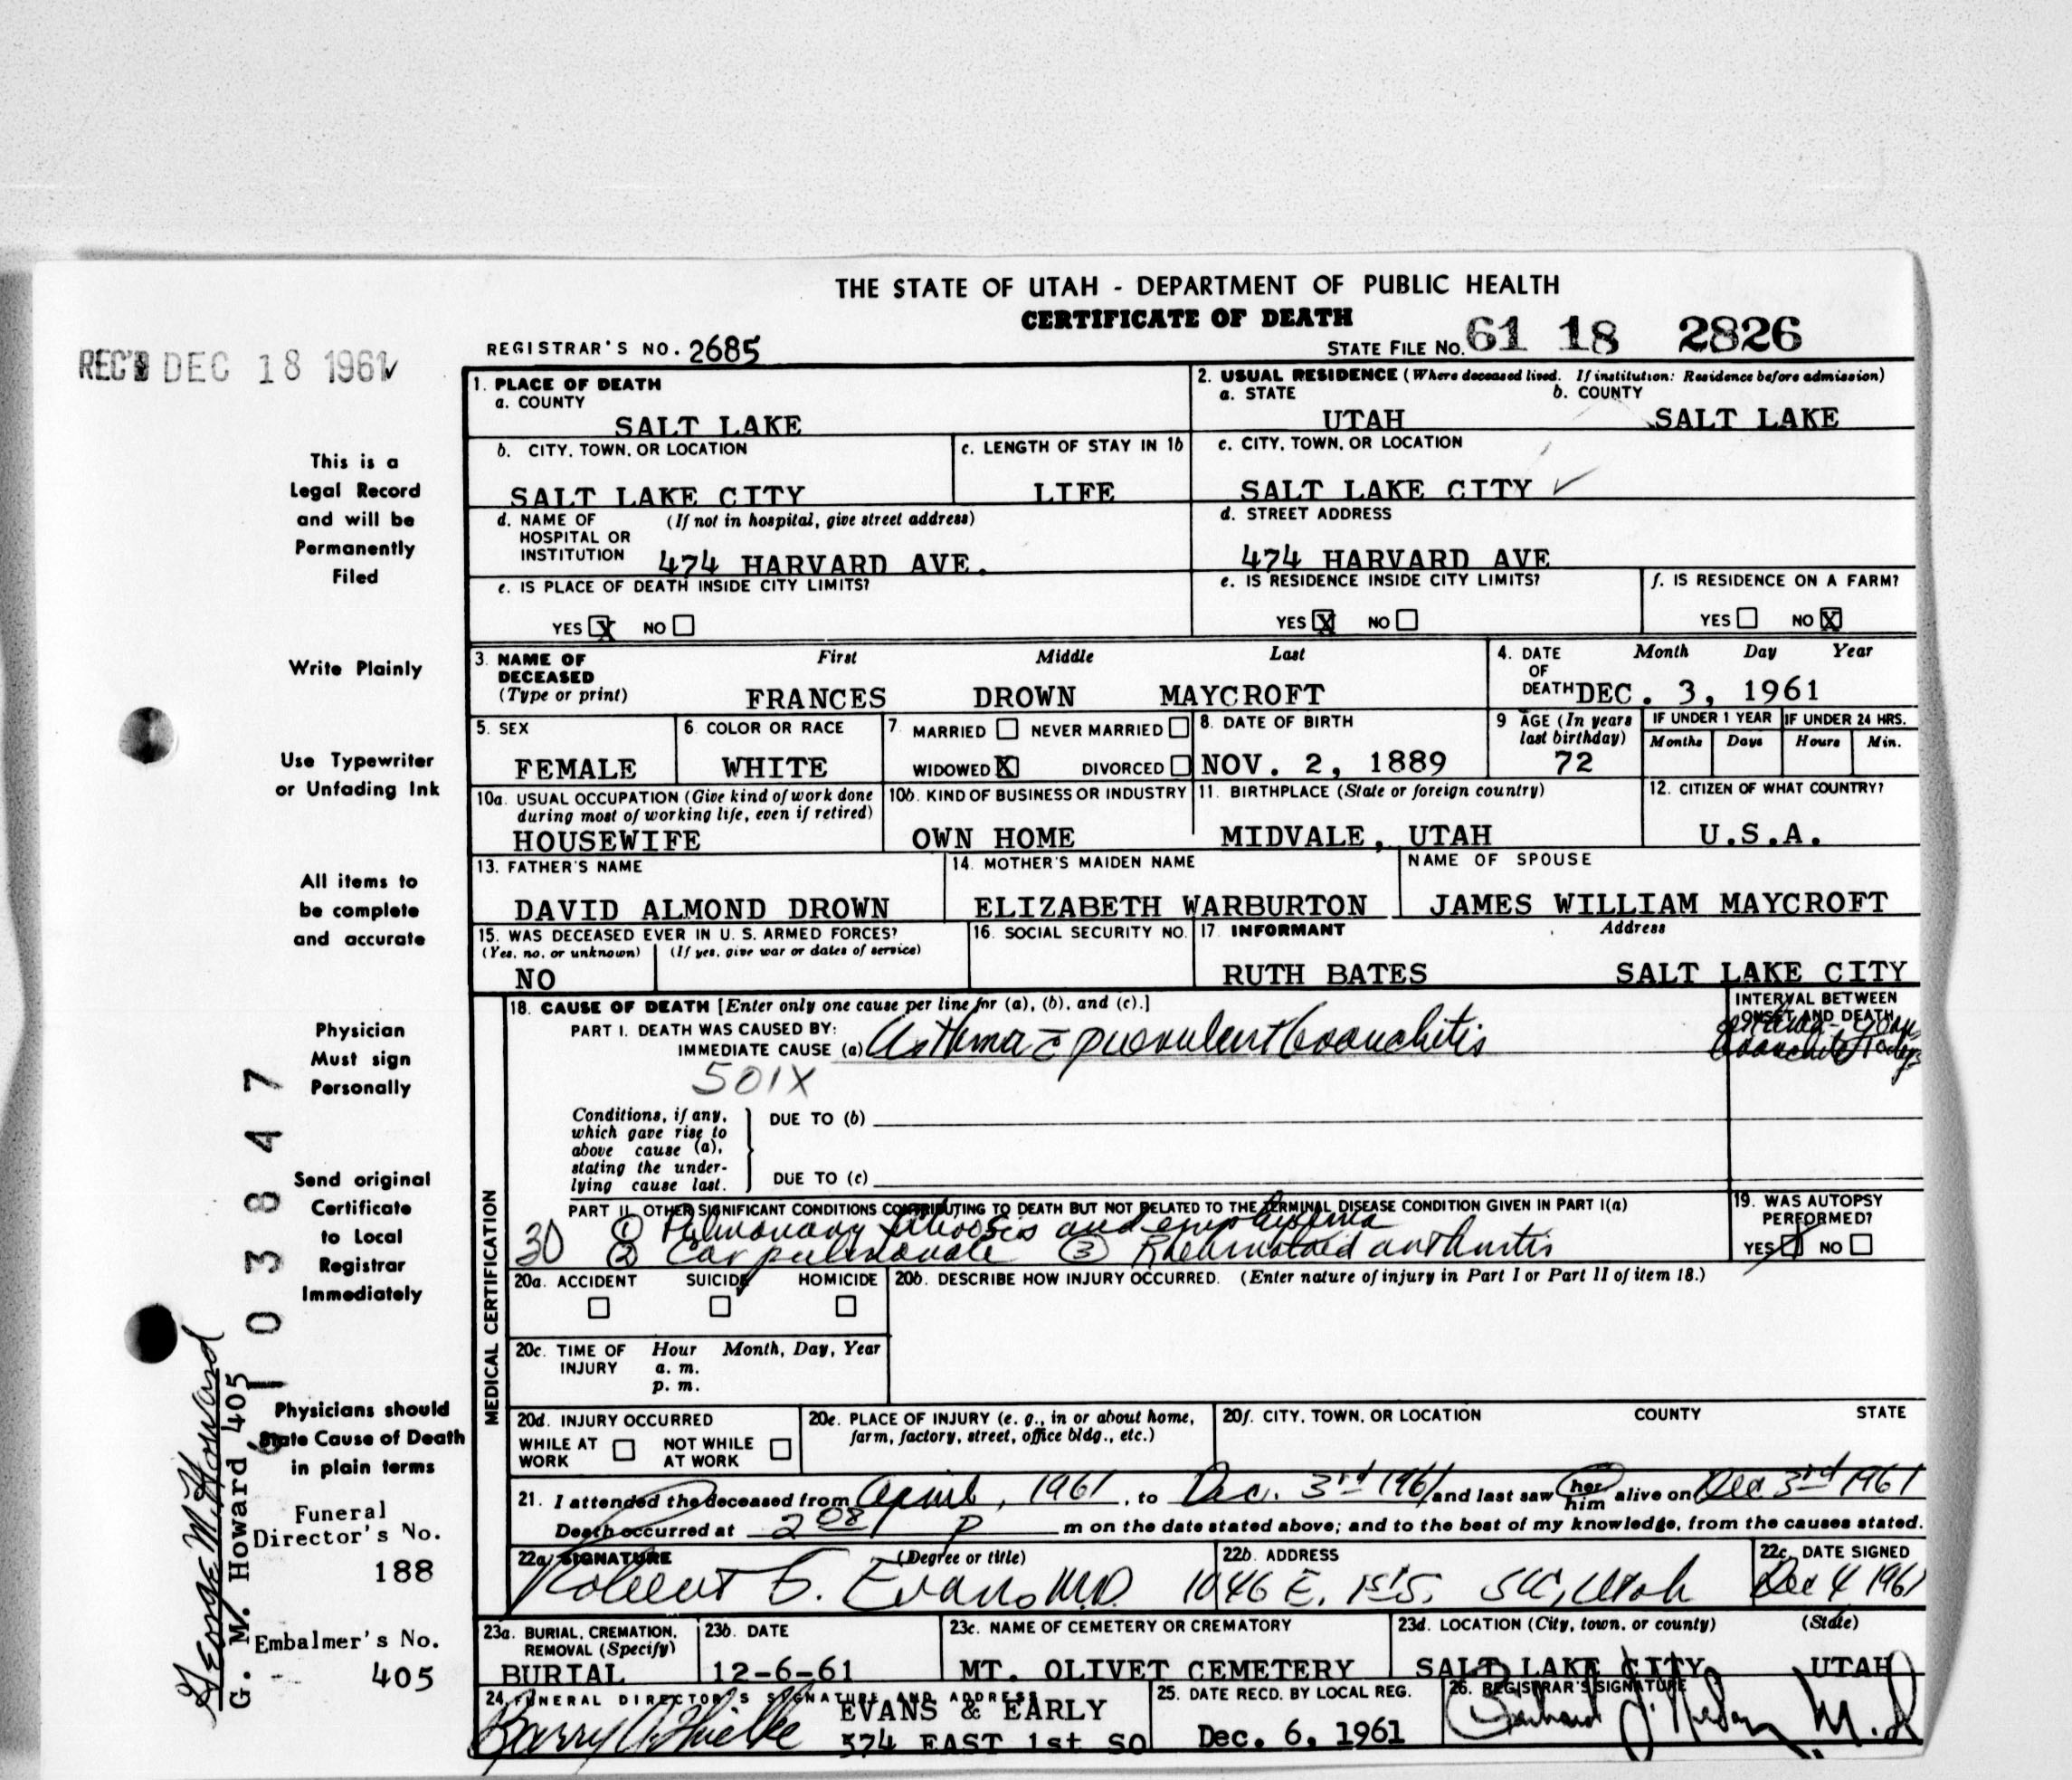 THE STATE OF UTAH - DEPARTMENT OF PUBLIC HEALTH
CERTIFICATE OF DEATH
REGISTRAR'S NO. 2685
STATE FILE NO. 61 18 2826
REC'D DEC 18 1961
1. PLACE OF DEATH
a. COUNTY
SALT LAKE
2. USUAL RESIDENCE (Where deceased lived. If institution: Residence before admission)
a. STATE b. COUNTY
UTAH SALT LAKE
b. CITY, TOWN, OR LOCATION
SALT LAKE CITY
c. LENGTH OF STAY IN 1b
LIFE
c. CITY, TOWN, OR LOCATION
SALT LAKE CITY
d. NAME OF (If not in hospital, give street address)
HOSPITAL OR
INSTITUTION 474 HARVARD AVE.
d. STREET ADDRESS
474 HARVARD AVE
e. IS PLACE OF DEATH INSIDE CITY LIMITS?
YES X NO
e. IS RESIDENCE INSIDE CITY LIMITS?
YES X NO
f. IS RESIDENCE ON A FARM?
YES NO X
3. NAME OF DECEASED (Type or print)
First Middle Last
FRANCES DROWN MAYCROFT
4. DATE OF DEATH Month Day Year
DEC. 3, 1961
5. SEX
FEMALE
6. COLOR OR RACE
WHITE
7. MARRIED NEVER MARRIED
WIDOWED X DIVORCED
8. DATE OF BIRTH
NOV. 2, 1889
9 AGE (In years last birthday)
72
IF UNDER 1 YEAR
Months Days
IF UNDER 24 HRS.
Hours Min.
10a. USUAL OCCUPATION (Give kind of work done
during most of working life, even if retired)
HOUSEWIFE
10b. KIND OF BUSINESS OR INDUSTRY
OWN HOME
11. BIRTHPLACE (State or foreign country)
MIDVALE, UTAH
12. CITIZEN OF WHAT COUNTRY?
U.S.A.
13. FATHER'S NAME
DAVID ALMOND DROWN
14. MOTHER'S MAIDEN NAME
ELIZABETH WARBURTON
NAME OF SPOUSE
JAMES WILLIAM MAYCROFT
15. WAS DECEASED EVER IN U. S. ARMED FORCES?
(Yes, no, or unknown) (If yes, give war or dates of service)
NO
16. SOCIAL SECURITY NO.
17. INFORMANT Address
RUTH BATES SALT LAKE CITY
MEDICAL CERTIFICATION
18. CAUSE OF DEATH [Enter only one cause per line for (a), (b), and (c).]
PART I. DEATH WAS CAUSED BY:
IMMEDIATE CAUSE (a) Asthma c purulent bronchitis
501X
INTERVAL BETWEEN
ONSET AND DEATH
Conditions, if any,
which gave rise to
above cause (a),
stating the under-
lying cause last.
DUE TO (b)
DUE TO (c)
PART II. OTHER SIGNIFICANT CONDITIONS CONTRIBUTING TO DEATH BUT NOT RELATED TO THE TERMINAL DISEASE CONDITION GIVEN IN PART I(a)
① Pulmonary fibrosis and emphysema
30 ② Cor pulmonale ③ Rheumatoid arthritis
19. WAS AUTOPSY
PERFORMED?
YES NO
20a. ACCIDENT SUICIDE HOMICIDE
20b. DESCRIBE HOW INJURY OCCURRED. (Enter nature of injury in Part I or Part II of item 18.)
20c. TIME OF INJURY
Hour Month, Day, Year
a. m.
p. m.
20d. INJURY OCCURRED
WHILE AT WORK NOT WHILE AT WORK
20e. PLACE OF INJURY (e. g., in or about home,
farm, factory, street, office bldg., etc.)
20f. CITY, TOWN, OR LOCATION COUNTY STATE
21. I attended the deceased from April, 1961, to Dec. 3rd 1961 and last saw her him alive on Dec 3rd 1961
Death occurred at 2 08 P m on the date stated above; and to the best of my knowledge, from the causes stated.
22a. SIGNATURE (Degree or title)
Robert E. Evans M.D.
22b. ADDRESS
1046 E. 1st S. SLC, Utah
22c. DATE SIGNED
Dec 4 1961
23a. BURIAL, CREMATION,
REMOVAL (Specify)
BURIAL
23b. DATE
12-6-61
23c. NAME OF CEMETERY OR CREMATORY
MT. OLIVET CEMETERY
23d. LOCATION (City, town, or county) (State)
SALT LAKE CITY UTAH
24. FUNERAL DIRECTOR'S SIGNATURE AND ADDRESS
EVANS & EARLY
574 EAST 1st SO
25. DATE RECD. BY LOCAL REG.
Dec. 6, 1961
26. REGISTRAR'S SIGNATURE
This is a
Legal Record
and will be
Permanently
Filed
Write Plainly
Use Typewriter
or Unfading Ink
All items to
be complete
and accurate
Physician
Must sign
Personally
Send original
Certificate
to Local
Registrar
Immediately
Physicians should
State Cause of Death
in plain terms
Funeral
Director's No.
188
Embalmer's No.
405
George M. Howard
G. M. Howard 405